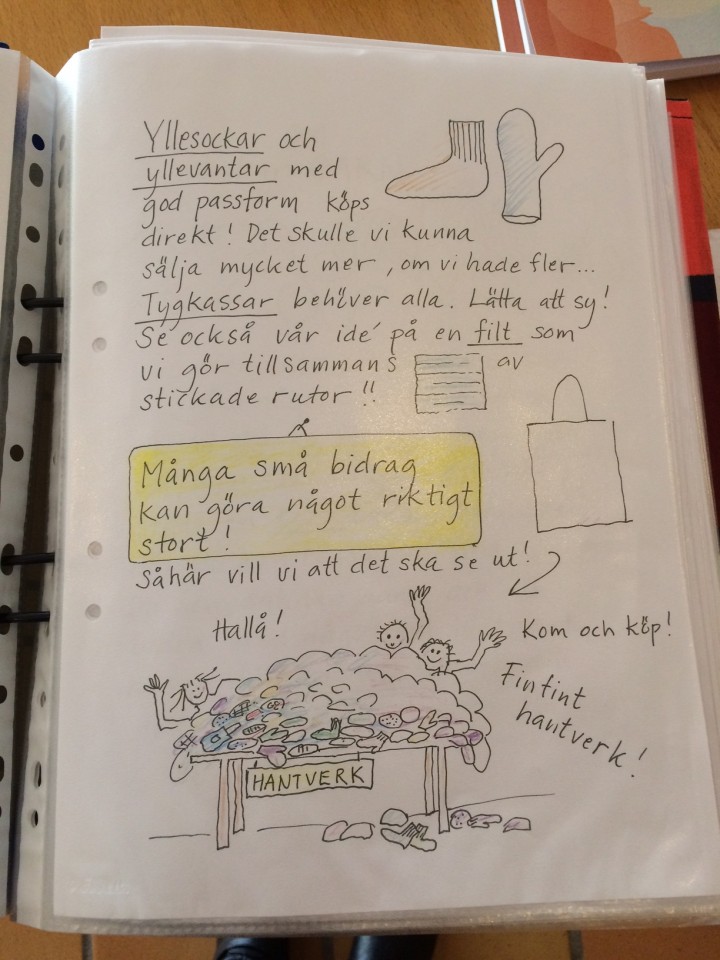 Yllesockar och
yllevantar med
god passform köps
direkt! Det skulle vi kunna
sälja mycket mer, om vi hade fler...
Tygkassar behöver alla. Lätta att sy!
Se också vår idé på en filt som
vi gör tillsammans av
stickade rutor!!
Många små bidrag
kan göra något riktigt
stort!
Såhär vill vi att det ska se ut!
Hallå!
Kom och köp!
Finfint
hantverk!
HANTVERK